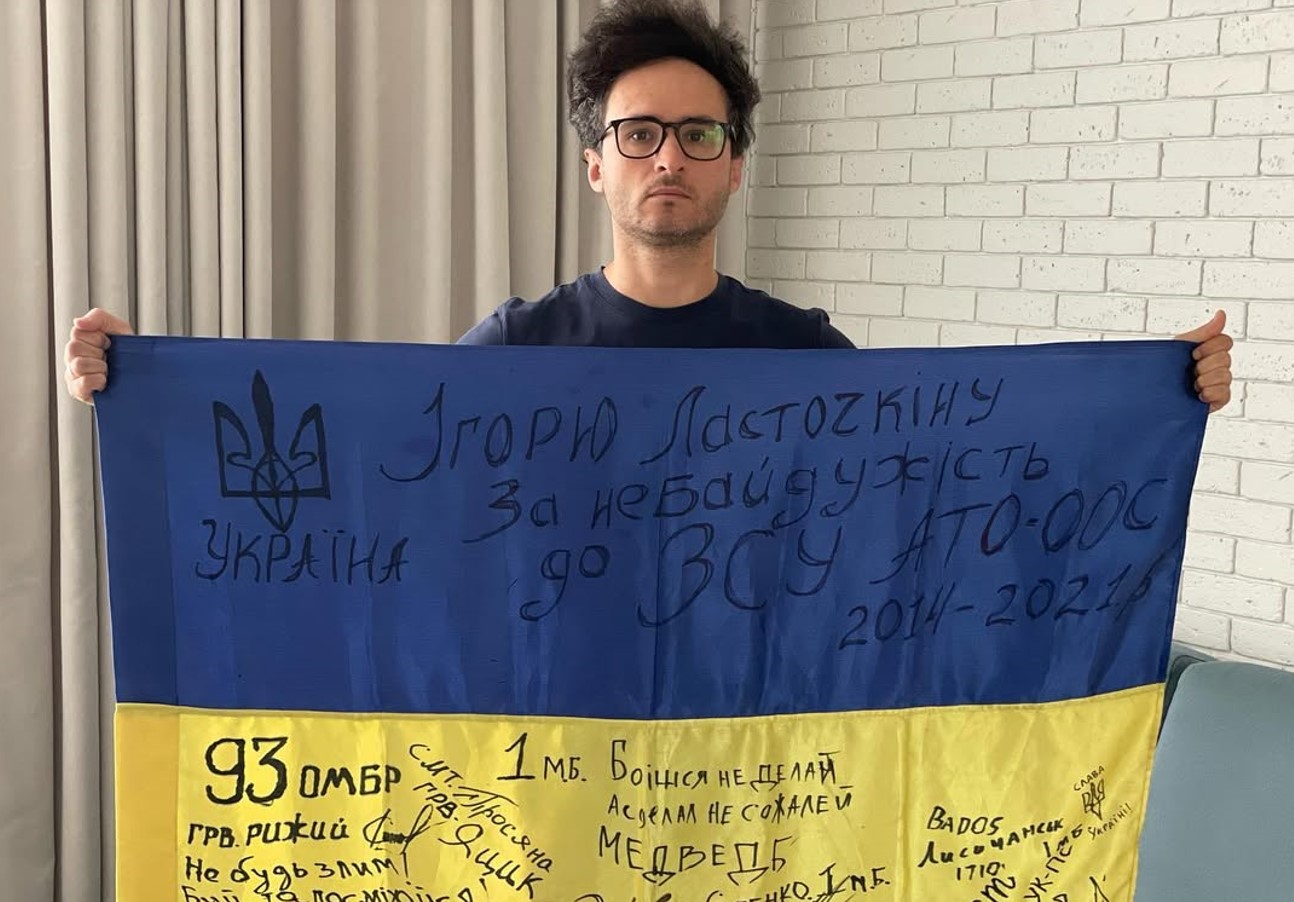 Ігорю Ласточкіну
За небайдужість
до ЗСУ АТО-ООС
2014-2021р
УКРАЇНА
93 ОМБР
ГРВ. РИЖИЙ
Не будь злим
Будь та посміхайся
смт. Просяна
ГРВ. ЯЩИК
1 МБ.
Боішся НЕ ДЕЛАЙ
А сделал НЕ СОЖАЛЕЙ
МЕДВЕДЬ
1 МБ.
BADOS
Лисичанськ
1710
СЛАВА
УКРАЇНІ!